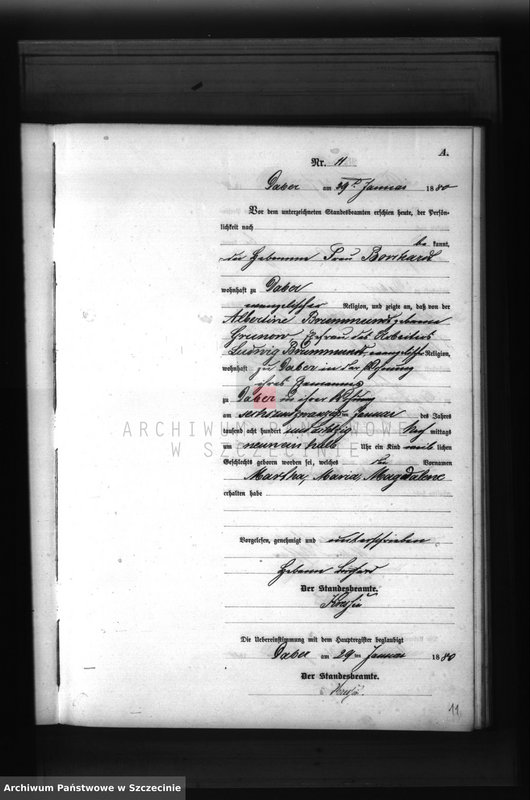 A.
Nr. 11
Daber am 29t Januar 1880
Vor dem unterzeichneten Standesbeamten erschien heute, der Persön-
lichkeit nach
be kannt,
die Hebamme Frau Borchard
wohnhaft zu Daber
evangelischer Religion, und zeigte an, daß von der
Albertine Brummund geborene
Grunow, Ehefrau des Arbeiters
Ludwig Brummund, evangelischer Religion,
wohnhaft zu Daber in der Wohnung
ihres Ehemannes
zu Daber in ihrer Wohnung
am sechsundzwanzigsten Januar des Jahres
tausend acht hundert und achtzig Nach mittags
um neuneinhalb Uhr ein Kind weib lichen
Geschlechts geboren worden sei, welches die Vornamen
Martha, Maria, Magdalene
erhalten habe
Vorgelesen, genehmigt und unterschrieben
Hebamme
Der Standesbeamte.
Die Uebereinstimmung mit dem Hauptregister beglaubigt
Daber am 29ten Januar 1880
Der Standesbeamte.
11
ARCHIWUM PAŃSTWOWE
W SZCZECINIE
Archiwum Państwowe w Szczecinie